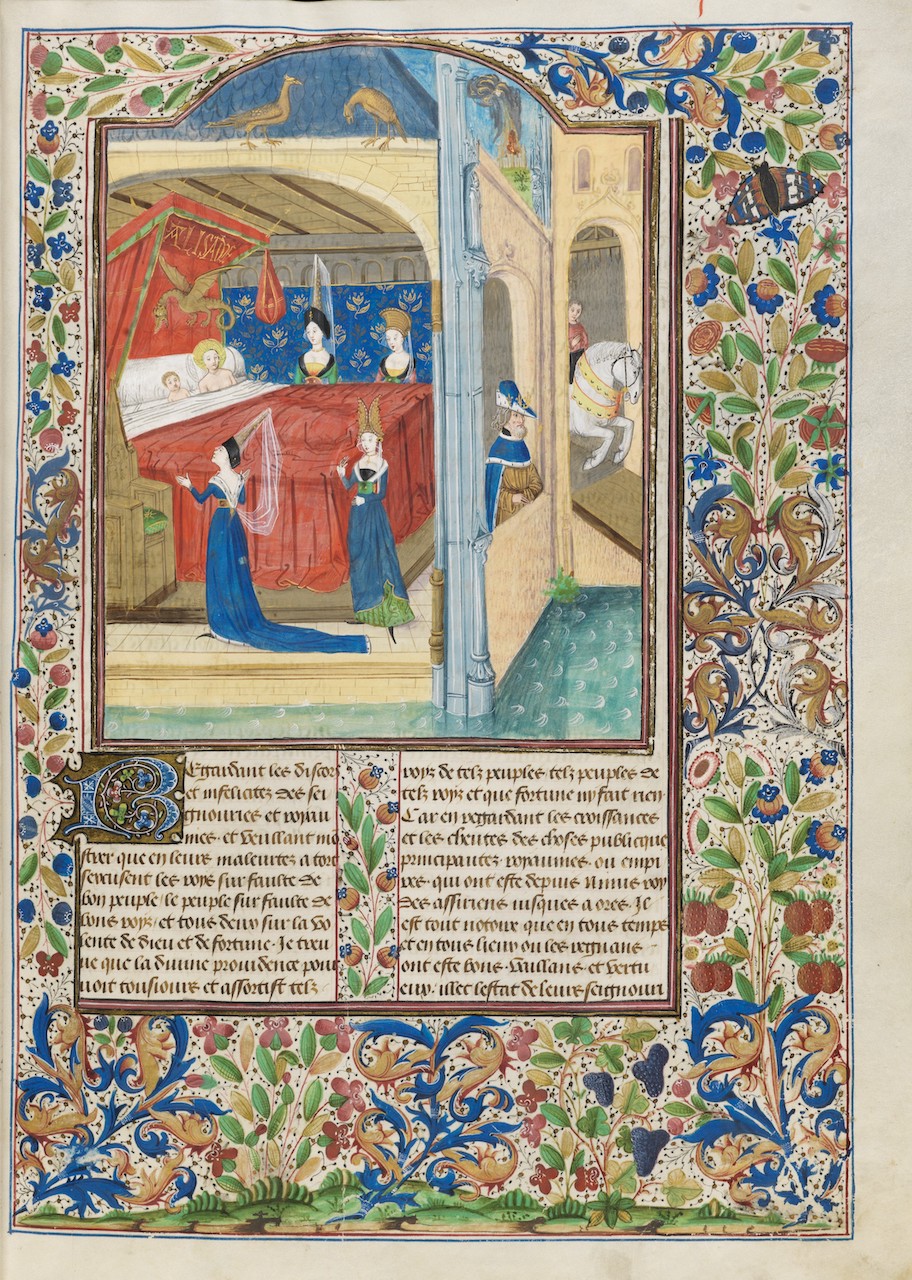 Regardant les discors
et infelicitez des sei
gnouries et royau
mes. et veuillant mo
strer que en leurs maleurtez a tort
sexcusent les roys sur faulte de
bon peuple / le peuple sur faulte de
bons roys / et tous deux sur la vo
lente de dieu et de fortune. Je treu
ue que la diuine prouidence pour
uoit tousiours et assortist telz
roys de telz peuples. telz peuples de
telz roys et que fortune ny fait rien
Car en regardant les croissances
et les cheutes des choses publicque
principautez royaumes. ou empi
res. qui ont este depuis Ninus roy
des assiriens iusques a ores. Il
est tout notoire que en tous temps
et en tous lieux ou les regnans
ont este bons. vaillans. et vertu
eux. illec lestat de leurs seignouri